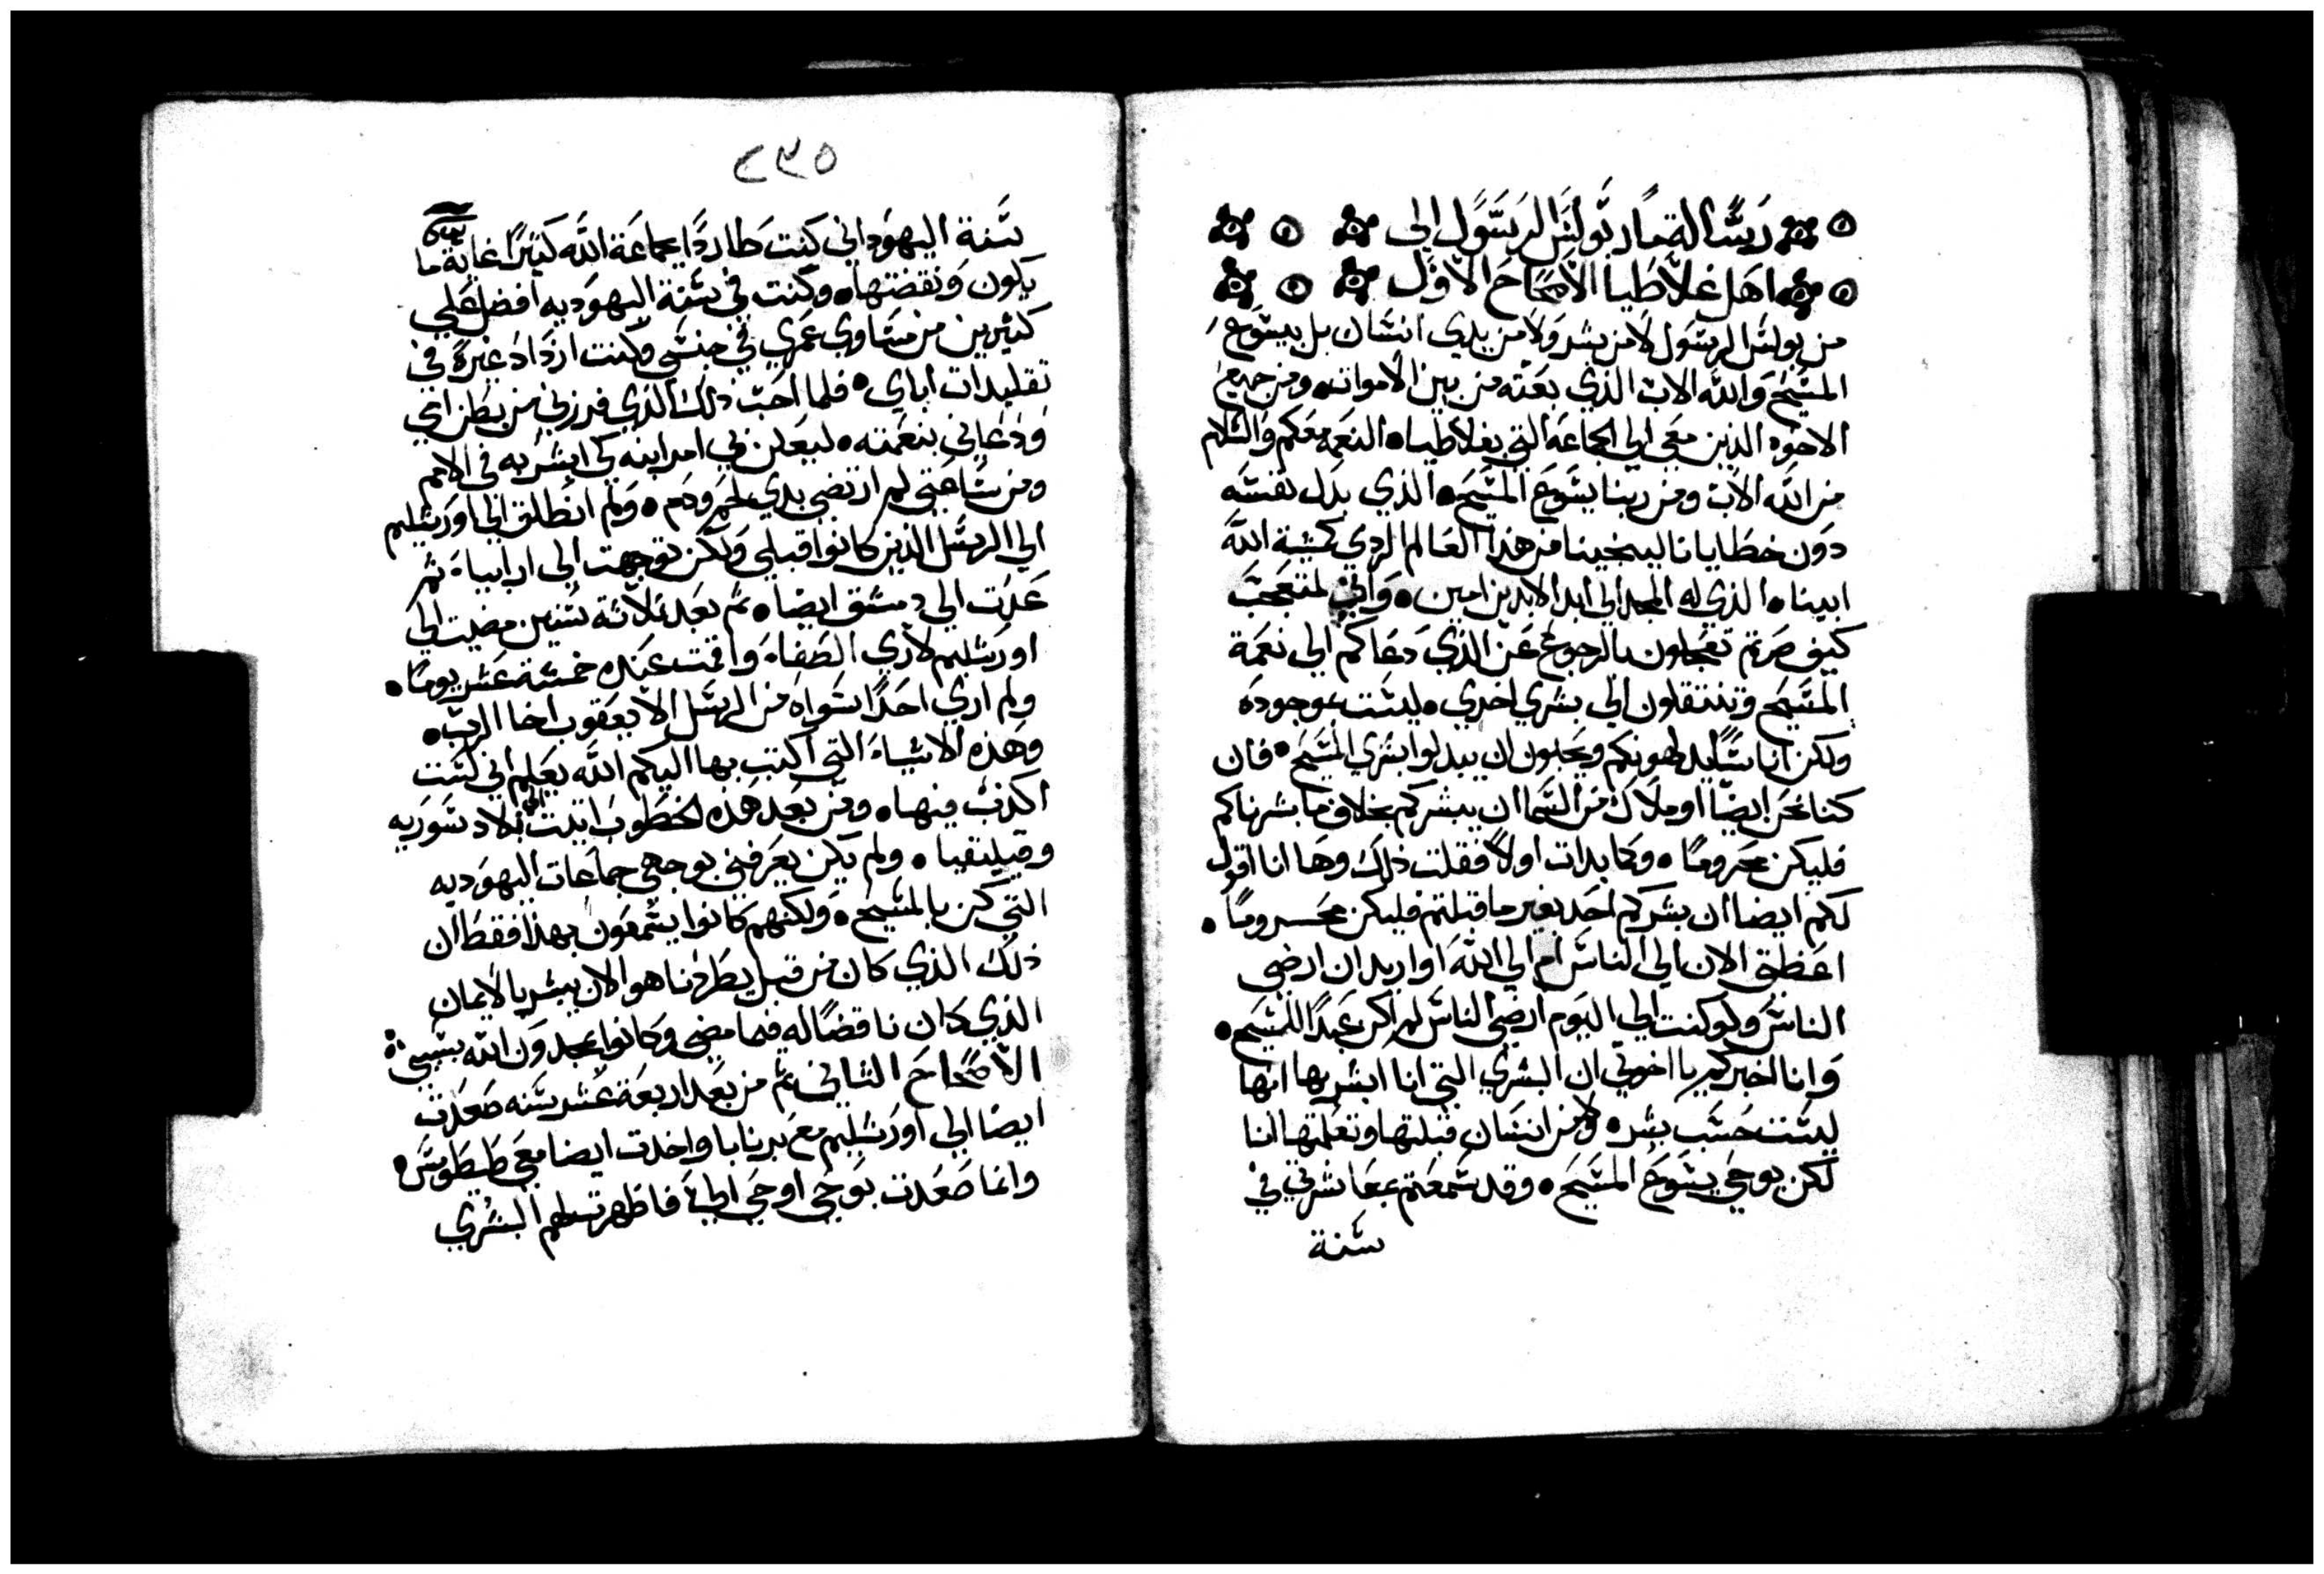 رسالة مار بولس الرسول الى
اهل غلاطيا الاصحاح الاول
من بولس الرسول لا من بشر ولا من يدي انسان بل بيسوع
المسيح والله الاب الذي بعثه من بين الاموات ومن جميع
الاخوه الذين معي الي الجماعة التي بغلاطيا النعمه معكم والسلام
من الله الاب ومن ربنا يسوع المسيح الذي بدل نفسه
دون خطايانا لينجينا من هذا العالم الردي كمشية الله
ابينا الذي له المجد الي ابد الابدين امين واني لمتعجب
كيف صرتم تعجلون بالرجوع عن الذي دعاكم الي نعمة
المسيح وتنتقلون الي بشري اخري ليست بموجوده
ولكن اناسا يرهبونكم ويحبون ان يبدلوا بشري المسيح فان
كنا نحن ايضا او ملاك من السما ان يبشركم بخلاف ما بشرناكم
فليكن محروما وكما بدات اولا فقلت ذلك وها انا اقول
لكم ايضا ان بشركم احد بغير ما قبلتم فليكن محروما
اعظتي الان الي الناس ام الي الله او اريد ان ارضي
الناس ولو كنت الي اليوم ارضي الناس لم اكن عبدا للمسيح
وانا اخبركم يا اخوتي ان البشري التي انا ابشر بها انها
ليست حسب بشر ولا من انسان قبلتها وتعلمتها انا
لكن بوحي يسوع المسيح وقد سمعتم بمعاشرتي في
سنة
٢٣٥
سنة اليهود اني كنت طاردا لجماعة الله كثيرا غاية ما
يكون ونقضتها وكنت في سنة اليهوديه افضل علي
كثيرين من مساوي عمري في جنسي وكنت ازداد غيرة في
تقليدات اباي فلما احب ذلك الذي فرزني من بطن امي
ودعاني بنعمته ليعلن في امر ابنه كي ابشر به في الامم
ومن ساعتي لم ارتضي بدي لحم ودم ولم انطلق الي اورشليم
الي الرسل الذين كانوا قبلي ولكن توجهت الى ارابيا ثم
عدت الي دمشق ايضا ثم بعد ثلاثة سنين مضيت الي
اورشليم لاري الصفا واقمت عنده خمسة عشر يوما
ولم اري احدا سواه من الرسل الا يعقوب اخا الرب
وهذه الاشياء التي اكتب بها اليكم الله يعلم اني لست
اكذب فيها ومن بعد هذه الخطوب اتيت الي بلاد سوريه
وقيليقيا ولم يكن يعرفني بوجهي جماعات اليهوديه
التي كن بالمسيح ولكنهم كانوا يسمعون بهذا فقط ان
ذلك الذي كان من قبل يطردنا هو الان يبشر بالايمان
الذي كان ناقضا له فيما مضي وكانوا يمجدون الله بسببي
الاصحاح الثاني ثم من بعد اربعة عشر سنه صعدت
ايضا الي اورشليم مع برنابا واخدت ايضا معي طيطوس
وانما صعدت بوحي اوحي الي فاظهرت لهم البشري